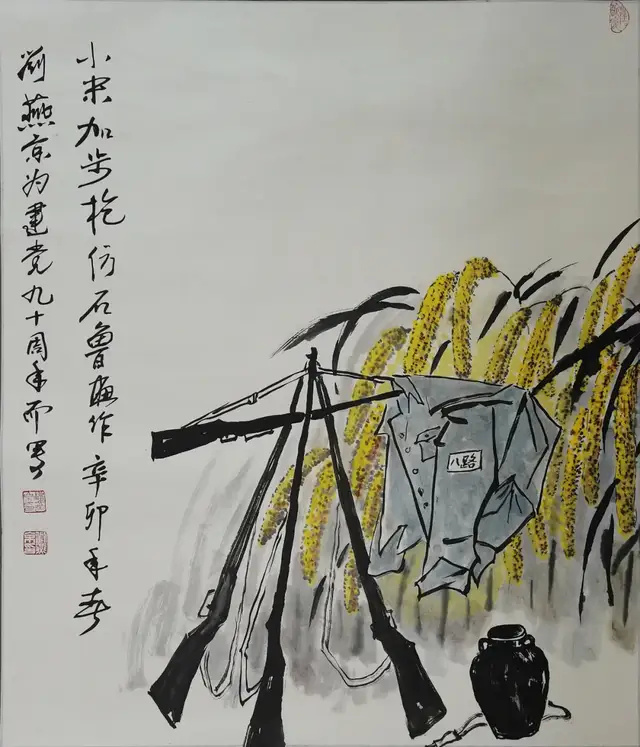 小米加步枪仿石鲁作辛卯年春
劉燕京为建党九十周年而写
八路